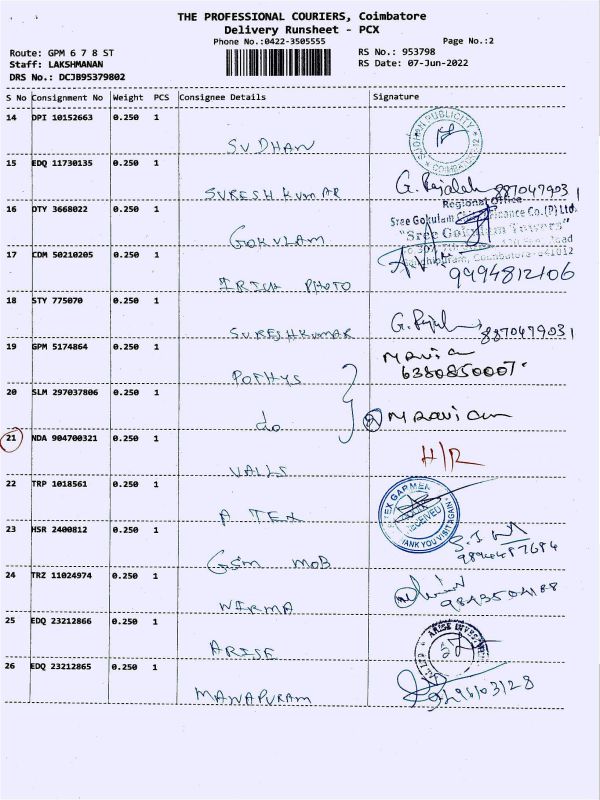 THE PROFESSIONAL COURIERS, Coimbatore
Delivery Runsheet - PCX
Phone No.:0422-3505555 Page No.:2
Route: GPM 6 7 8 ST RS No.: 953798
Staff: LAKSHMANAN RS Date: 07-Jun-2022
DRS No.: DCJB95379802
S No Consignment No Weight PCS Consignee Details Signature
14 DPI 10152663 0.250 1
SUDHAN
15 EDQ 11730135 0.250 1
SURESH KUMAR G. 8870479031
16 DTY 3668022 0.250 1 Regional Office
Sree Gokulam Finance Co.(P) Ltd.
GOKULAM "Sree Gokulam Towers"
17 CDM 50210205 0.250 1
IRICH PHOTO 9994812106
18 STY 775070 0.250 1
SURESHKUMAR G. 8870479031
19 GPM 5174864 0.250 1
POTHYS 6380850007
20 SLM 297037806 0.250 1
do
21 NDA 904700321 0.250 1 H/R
VALLS
22 TRP 1018561 0.250 1
A TEX RECEIVED
23 HSR 2400812 0.250 1
GSM MOB
24 TRZ 11024974 0.250 1
NIRMA
25 EDQ 23212866 0.250 1
ARISE
26 EDQ 23212865 0.250 1
MANAPURAM